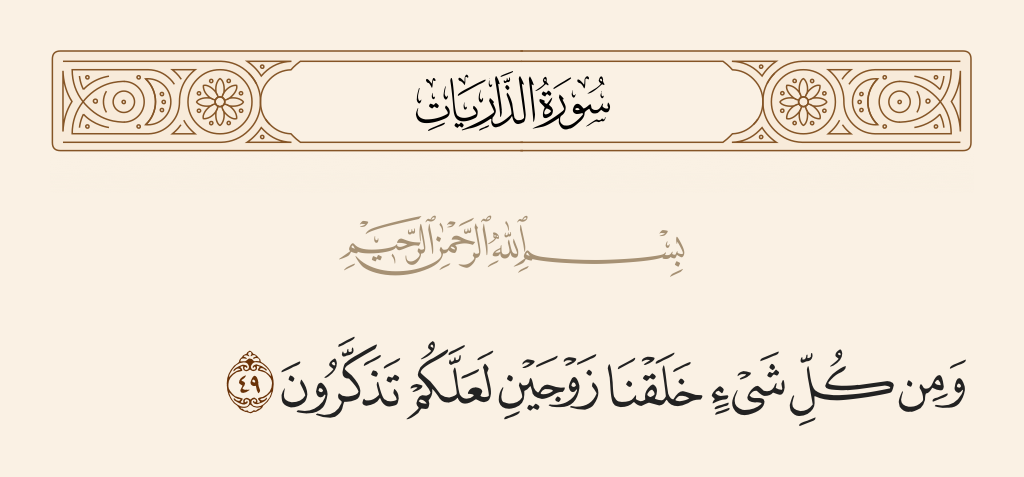 سُورَةُ الذَّارِيَاتِ
بِسْمِ ٱللَّهِ ٱلرَّحْمَٰنِ ٱلرَّحِيمِ
وَمِن كُلِّ شَىْءٍ خَلَقْنَا زَوْجَيْنِ لَعَلَّكُمْ تَذَكَّرُونَ ٤٩